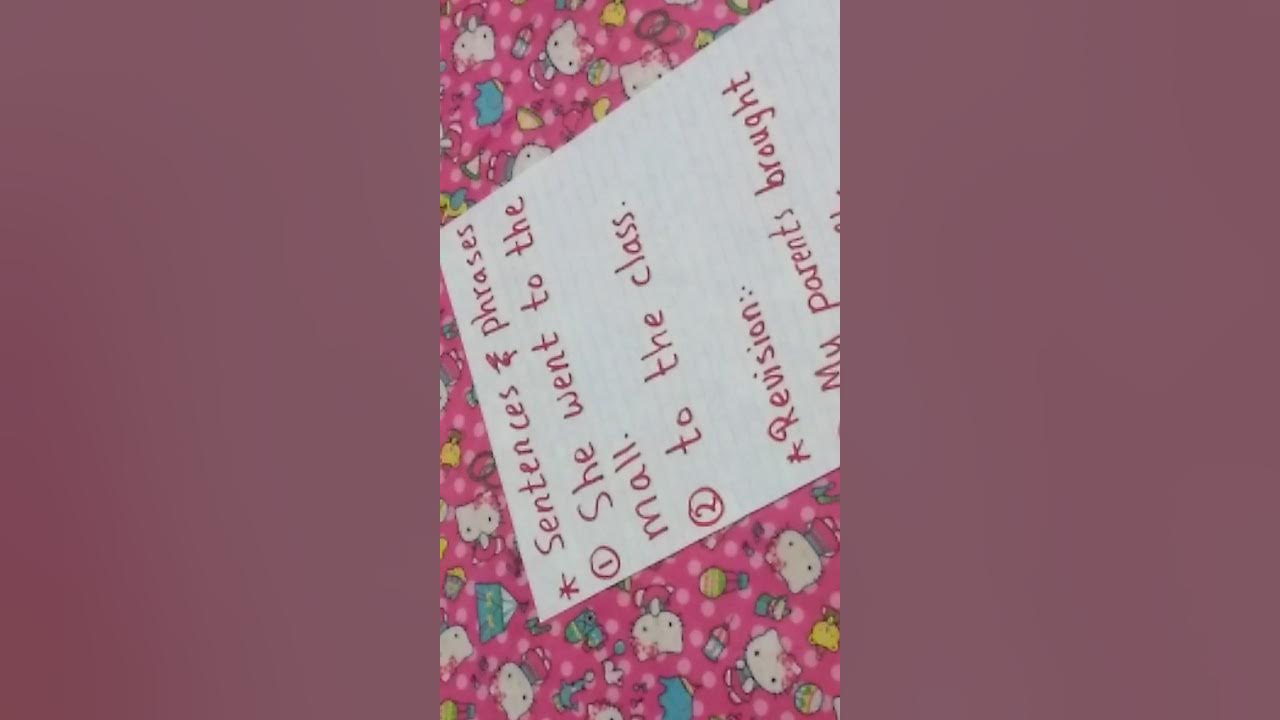 * Sentences & phrases
① She went to the
mall.
② to the class.
* Revision:-
My parents brought